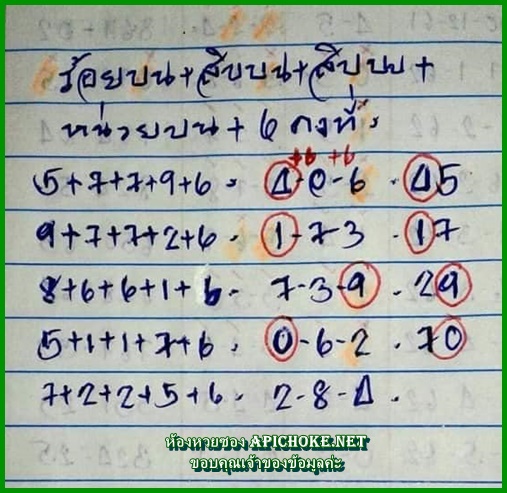 ร้อยบน+สิบบน+สิบบน+
หน่วยบน + 6 คงที่
+6 +6
5+7+7+9+6 - 4-0-6 . 45
9+7+7+2+6 - 1-7-3 . 17
8+6+6+1+6 - 7-3-9 . 29
5+1+1+7+6 . 0-6-2 . 70
7+2+2+5+6 - 2-8-4 .
ห้องหวยซอง APICHOKE.NET
ขอบคุณเจ้าของข้อมูลค่ะ